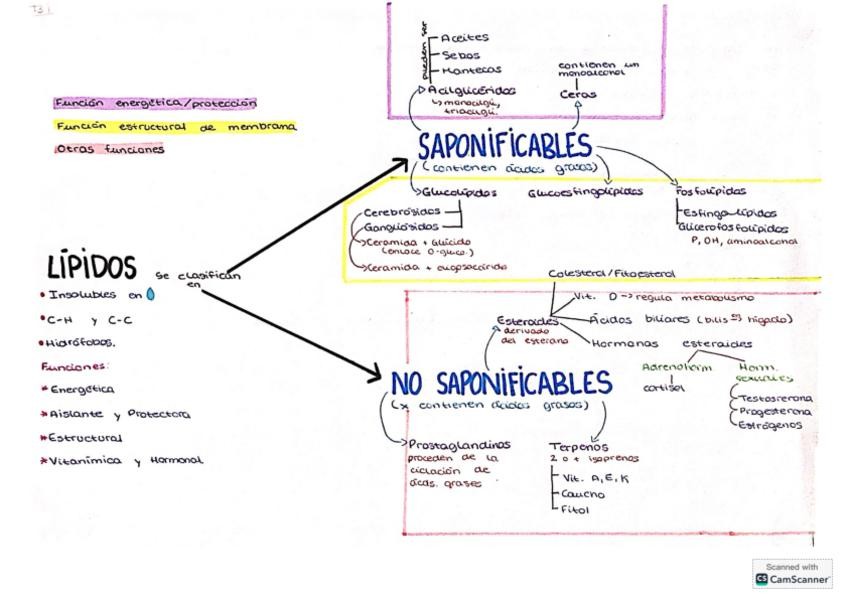 T3
Función energética/protección
Función estructural de membrana
Otras funciones
pueden ser
Aceites
Sebos
Mantecas
Acilglicéridos
↳ monoacilgl,
triacilgl.
contienen un
monoalcohol
Ceras
SAPONIFICABLES
(contienen ácidos grasos)
Glucolípidos
Cerebrósidos
Gangliósidos
Ceramida + Glúcido
(enlace O-gluco.)
Ceramida + oligosacárido
Glucoesfingolípidos
Fosfolípidos
Esfingolípidos
Glicerofosfolípidos
P, OH, aminoalcohol
LÍPIDOS
se clasifican
en
• Insolubles en
• C-H y C-C
• Hidrófobos.
Funciones:
* Energética
* Aislante y Protectora
* Estructural
* Vitanímica y Hormonal
Colesterol/Fitoesterol
Vit. D → regula metabolismo
Esteroides
derivado
del esterano
Ácidos biliares (bilis hígado)
Hormonas esteroides
Adrenoherm.
cortisol
Horm.
sexuales
Testosterona
Progesterona
Estrógenos
NO SAPONIFICABLES
(x contienen ácidos grasos)
Prostaglandinas
proceden de la
ciclación de
ácds. grases
Terpenos
2 o + isoprenos
Vit. A, E, K
Caucho
Fitol
Scanned with
CS CamScanner